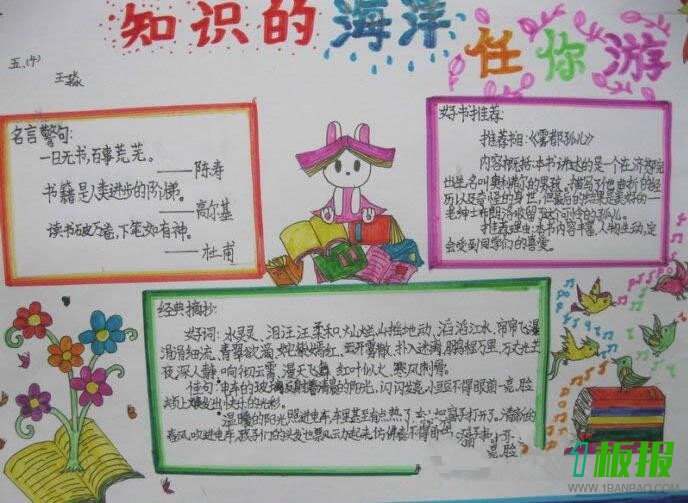 知识的海洋任你游
五.(4)
王淼
名言警句:
一日无书,百事荒芜。
——陈寿
书籍是人类进步的阶梯。
——高尔基
读书破万卷,下笔如有神。
——杜甫
好书推荐:
推荐书目:《雾都孤儿》
内容概括:本书讲述的是一个在济贫院
出生名叫奥利弗尔的男孩。描写了他曲折的经
历以及奇怪的身世,但最后的结果是美好的一
老绅士布朗洛收留了这个可怜的孤儿。
推荐理由:本书内容丰富,人物生动,定
会受到同学们的喜爱。
经典摘抄:
好词:水灵灵、泪汪汪柔和灿烂,山摇地动、滔滔江水,帘帘飞瀑
涓涓细流,青翠欲滴,姹紫嫣红,云开雾散,扑入迷离,鹏程万里,万丈光芒
夜深人静,响彻云霄,漫天飞舞,红叶似火,寒风刺骨。
佳句:电车的玻璃反射着清晨的阳光,闪闪发亮,小豆豆不得眼前一亮,脸
上放出快乐的光彩。
温暖的阳光照进电车,车里甚至有点热了,有人把窗子打开了。清新的
春风吹进电车,孩子们的头发也飘
亮,脸
1板报
WWW.1BANBAO.COM